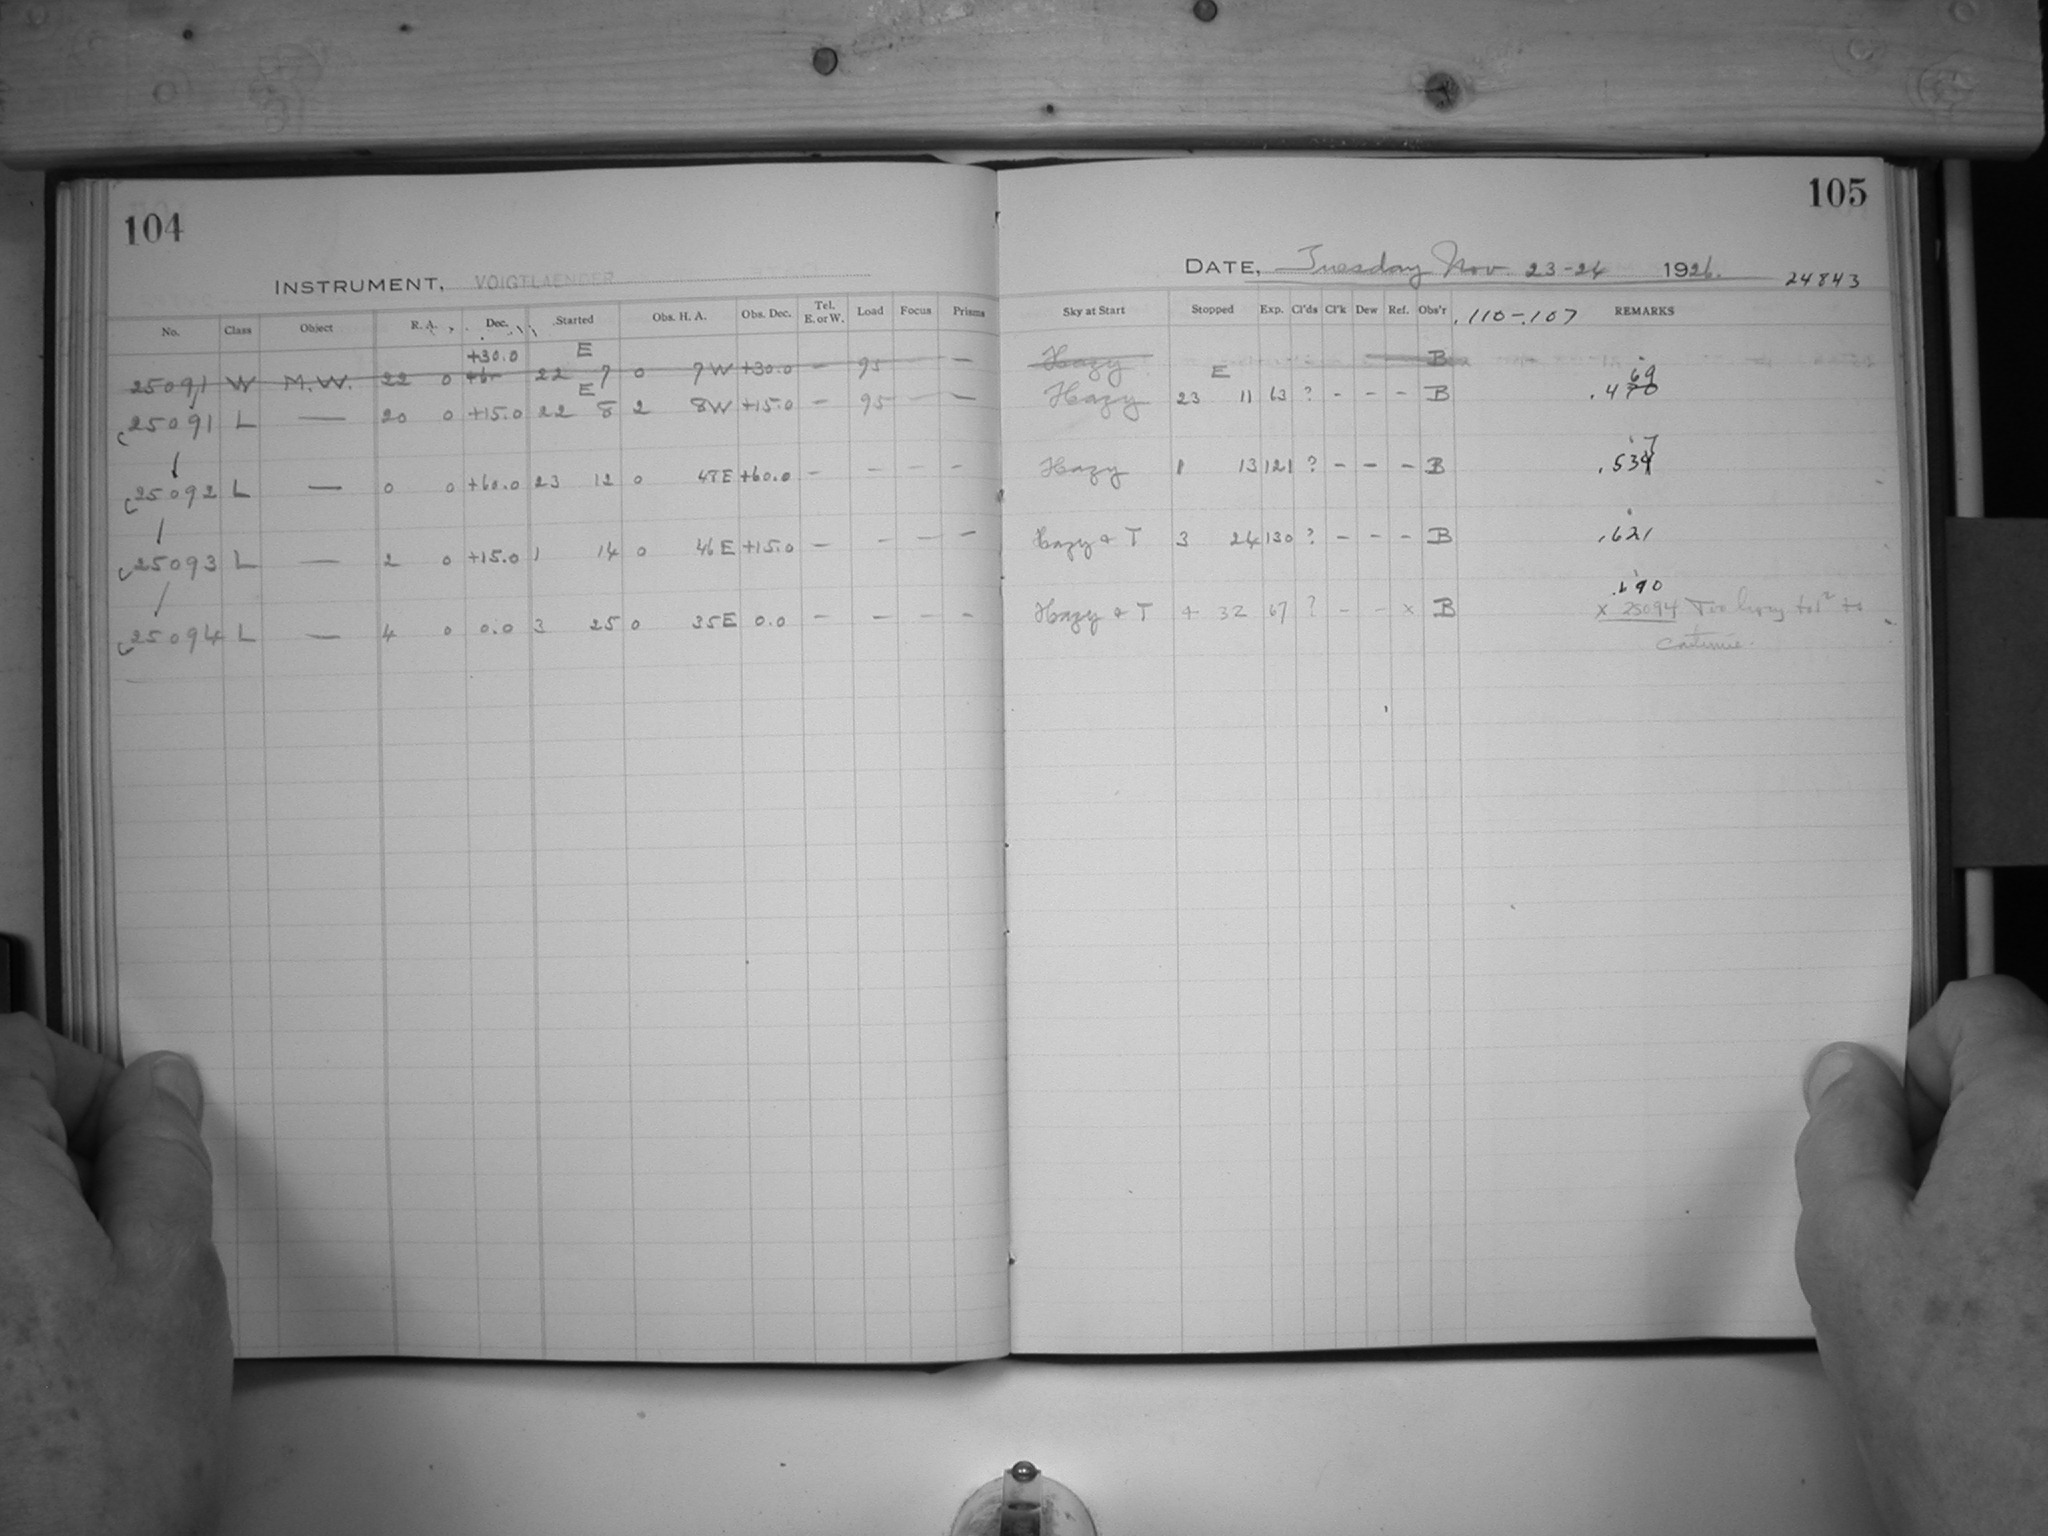 104
INSTRUMENT, VOIGTLAENDER
No. Class Object R. A. Dec. Started Obs. H. A. Obs. Dec. Tel. E. or W. Load Focus Prisms
+30.0 E
25091 W M.W. 22 0 22 7 0 7W +30.0 – 95 – –
E
25091 L — 20 0 +15.0 22 8 2 8W +15.0 – 95 – –
25092 L — 0 0 +60.0 23 12 0 48E +60.0 – – – –
25093 L — 2 0 +15.0 1 14 0 46E +15.0 – – – –
25094 L — 4 0 0.0 3 25 0 35E 0.0 – – – –
105
DATE, Tuesday Nov 23-24 1926. 24843
Sky at Start Stopped Exp. Cl'ds Cl'k Dew Ref. Obs'r .110-.107 REMARKS
Hazy B
E 69
Hazy 23 11 63 ? – – – B .470
7
Hazy 1 13 121 ? – – – B .534
Hazy & T 3 24 130 ? – – – B .621
.690
Hazy & T 4 32 67 ? – – × B × 25094 Too hazy to
continue.